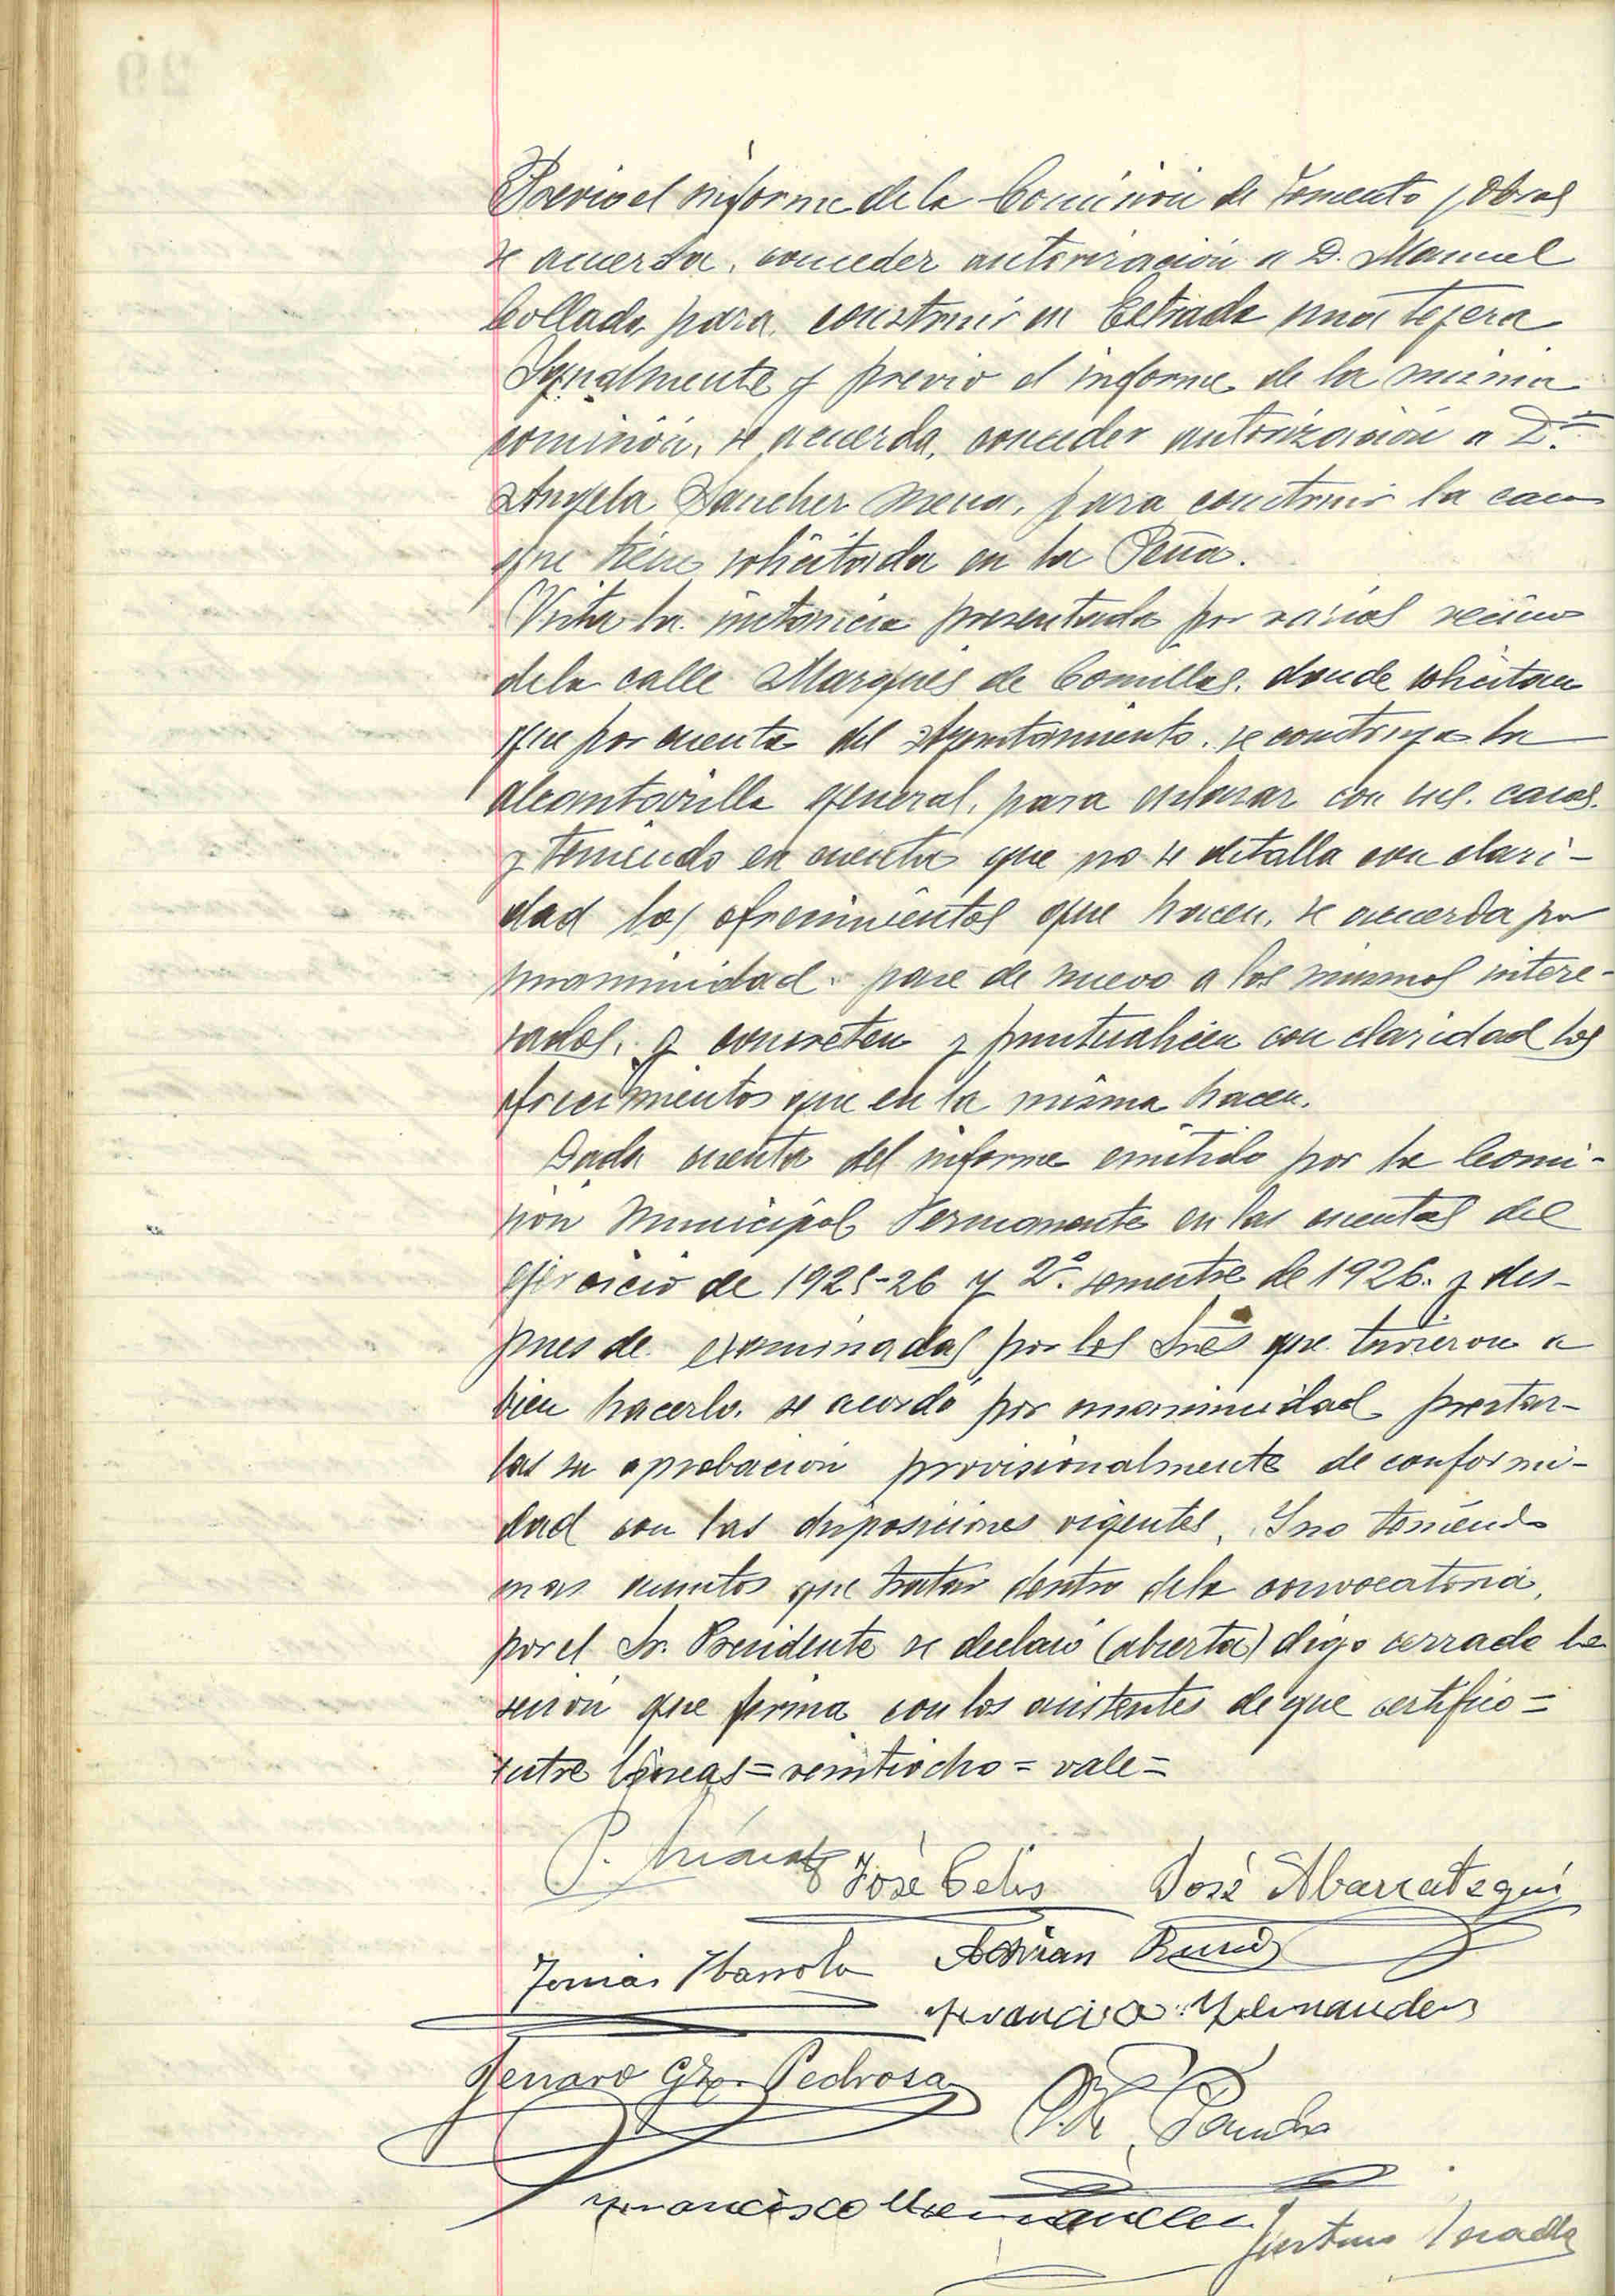 Previo el informe de la Comisión de Fomento y Obras
se acuerda, conceder autorización a D. Manuel
Collado, para construir en Estrada una tejera
Igualmente y previo el informe de la misma
comisión, se acuerda, conceder autorización a D.ª
Angela Sanchez Mena, para construir la casa
que tiene solicitada en la Peña.
Vista la instancia presentada por varios vecinos
de la calle Marqués de Comillas, donde solicitan
que por cuenta del Ayuntamiento, se construya la
alcantarilla general, para enlazar con sus casas,
y teniendo en cuenta que no se detalla con clari-
dad los ofrecimientos que hacen, se acuerda por
unanimidad, pase de nuevo a los mismos intere-
sados, y concreten y puntualicen con claridad los
ofrecimientos que en la misma hacen.
Dada cuenta del informe emitido por la Comi-
sión Municipal Permanente en las cuentas del
ejercicio de 1925-26 y 2º semestre de 1926. y des-
pues de examinadas por los Sres que tuvieron a
bien hacerlo, se acordó por unanimidad prestar-
las su aprobación provisionalmente de conformi-
dad con las disposiciones vigentes. Y no teniendo
mas asuntos que tratar dentro de la convocatoria,
por el Sr. Presidente se declaró (abierta) digo cerrada la
sesión que firma con los asistentes de que certifico =
entre lineas = veintiocho = vale =
P.
José Celis José Abarrategui
Tomás Ibarrola Adrian Ruiz
Francisco Hernandez
Genaro Gz. Pedrosa
Francisco
Justino